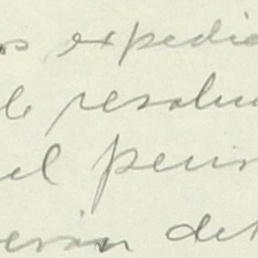 os expedie
de resolu
el peri
erán det